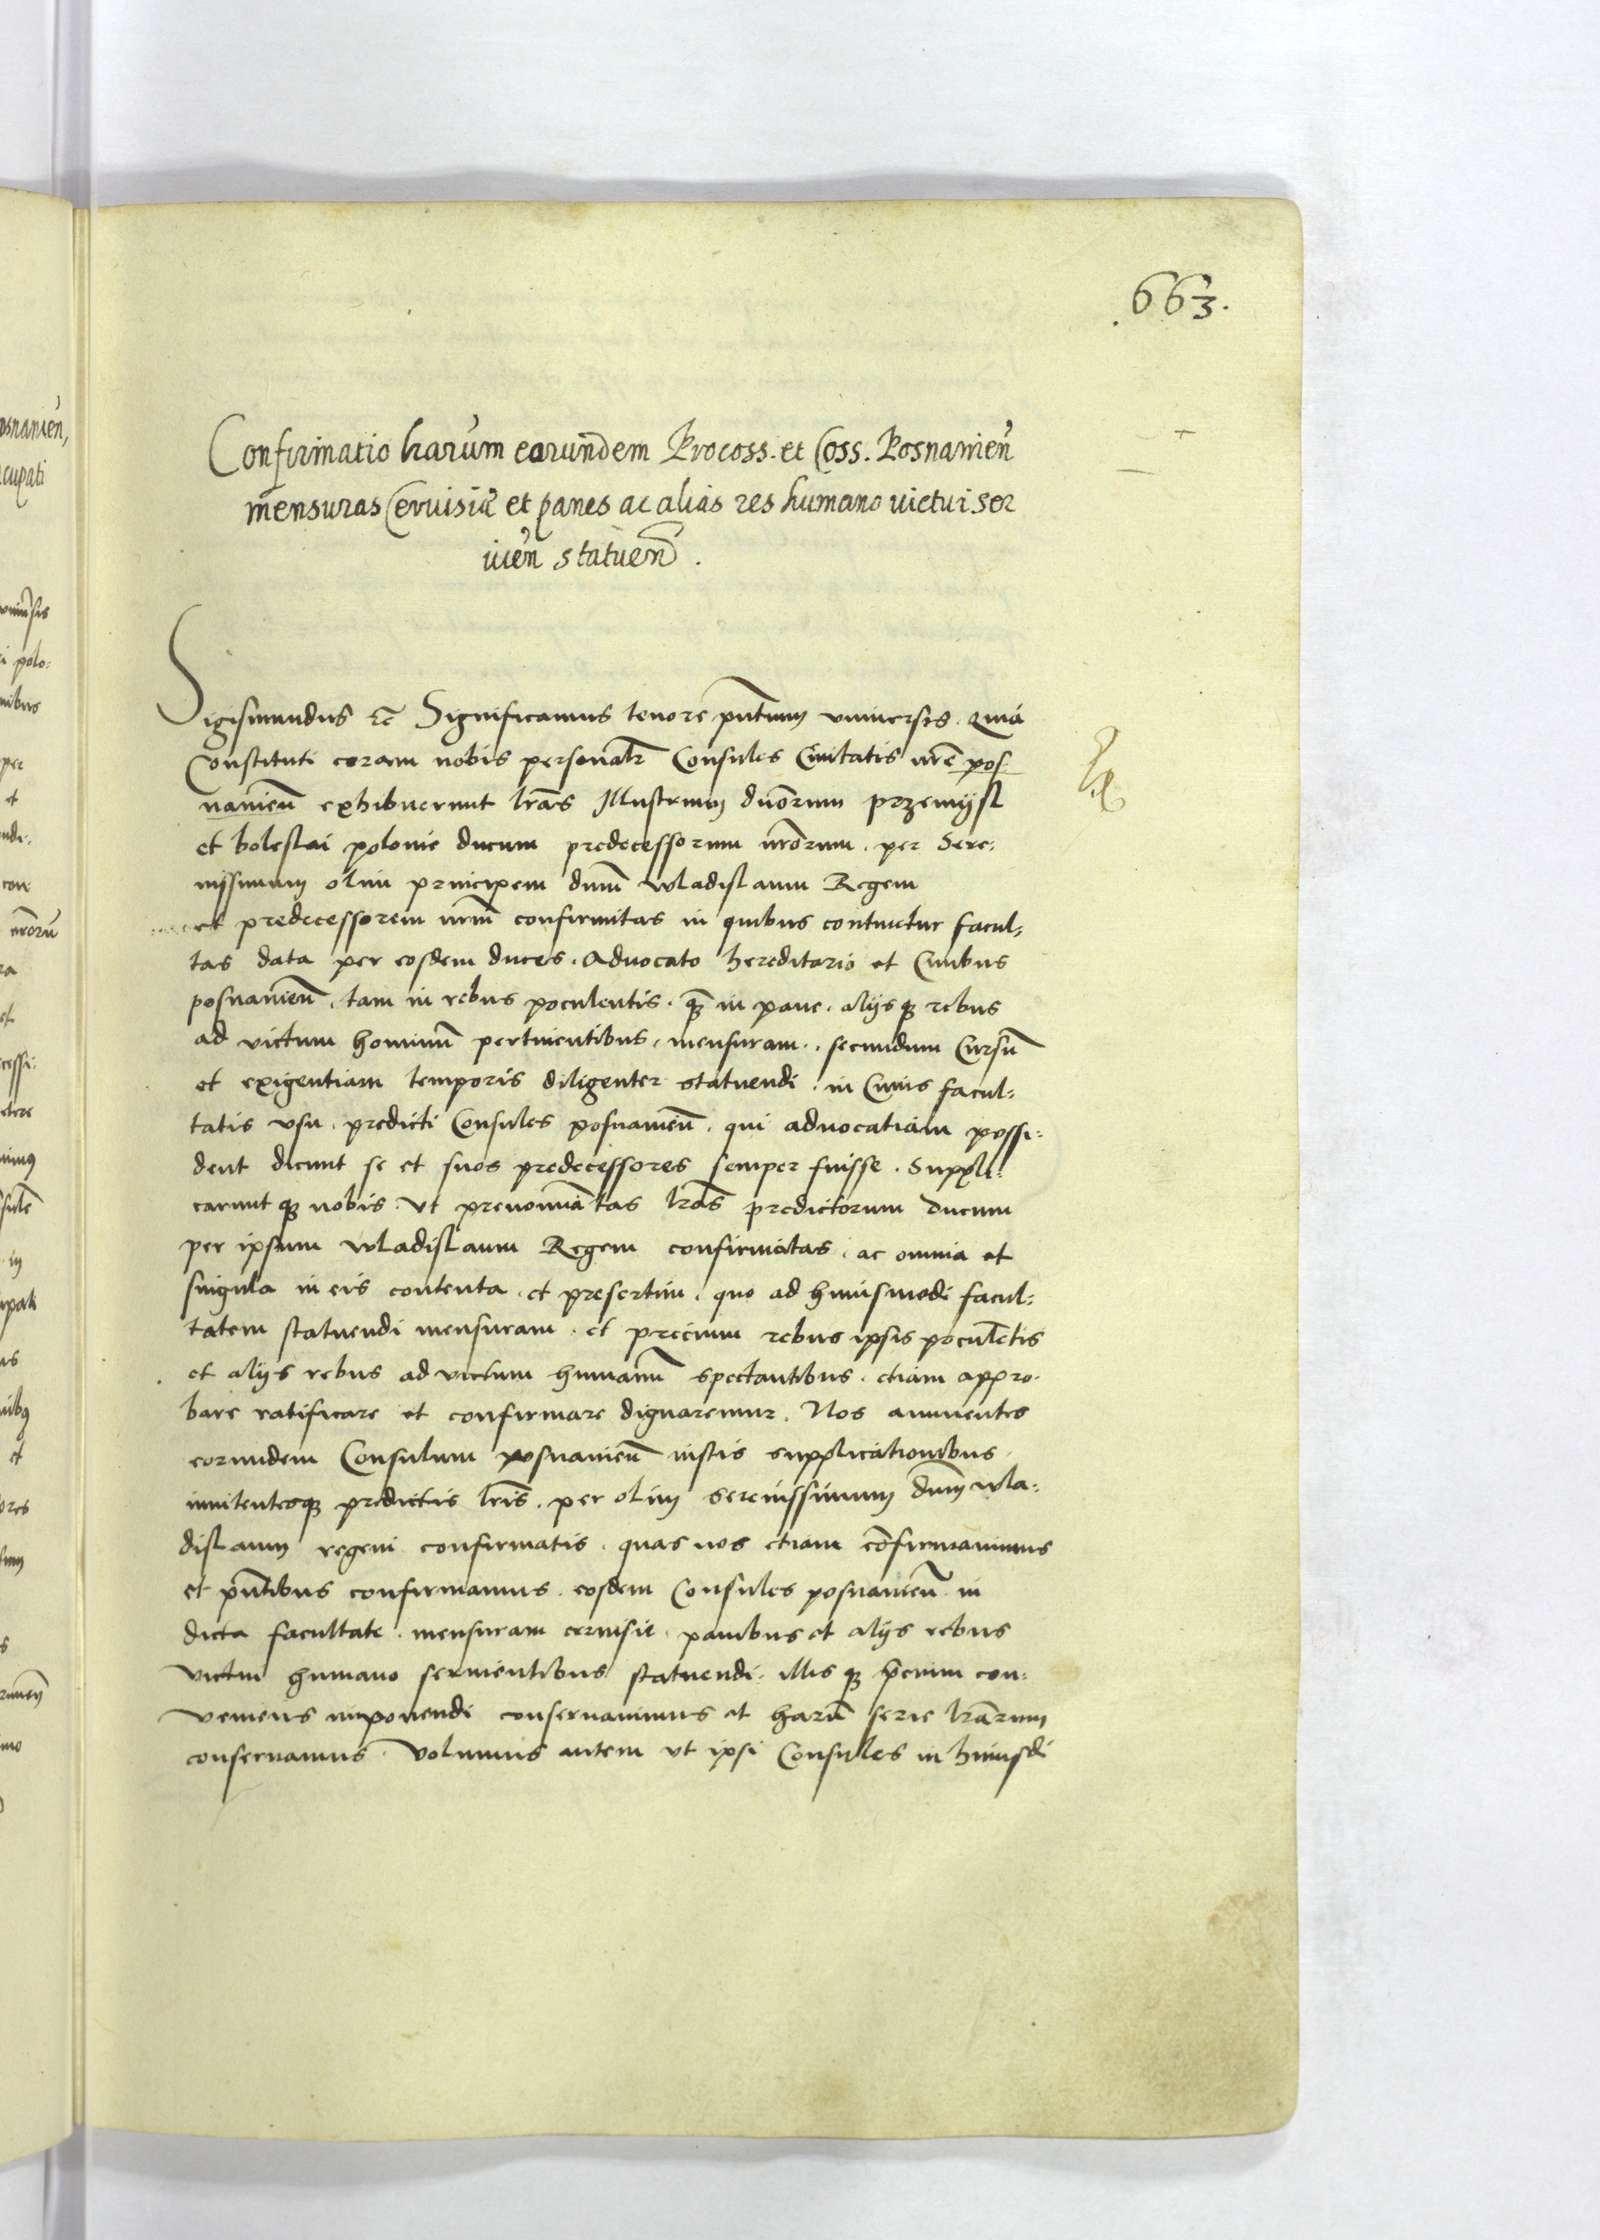 .663.
Confirmatio harum earundem Procoss. et Coss. Posnanien̄
mensuras Ceruisiæ et panes ac alias res humano victui ser
uien̄ statuen̄.
Sigismundus etc̄ Significamus tenore pn̄tium vniuersis. Quia
Constituti coram nobis personalr̄ Consules Ciuitatis nrē pos
nanien̄ exhibuerunt lrās Illustrium duōrum przemysl
et boleslai polonie ducum predecessorum nrōrum. per Sere:
nissimum olim principem dnm̄ wladislaum Regem
et predecessorem nrm̄ confirmatas in quibus continetur facul:
tas data per eosdem duces. Aduocato hereditario et Ciuibus
posnanien̄. tam in rebus poculentis. q̄ in pane. alijsq rebus
ad victum hominū pertinentibus. mensuram. secundum Cursū
et exigentiam temporis diligenter statuendi. in Cuius facul:
tatis vsu. predicti Consules posnanien̄. qui aduocatiam possi:
dent dicunt se et suos predecessores semper fuisse. Suppli:
carunt q nobis. vt prenominatas lrās predictorum Ducum
per ipsum wladislaum Regem confirmatas. ac omnia et
singula in eis contenta. et presertim. quo ad huiusmodi facul:
tatem statuendi mensuram. et precium rebus ipsis poculētis
et alijs rebus ad victum humanū spectantibus. etiam appro.
bare ratificare et confirmare dignaremur. Nos annuentes
eorundem Consulum posnanien̄ iustis supplicationibus.
innitentesq predictis lrīs. per olim serenissimum dnm̄ wla:
dislaum regem confirmatis. quas nos etiam cōfirmauimus
et pn̄tibus confirmamus. eosdem Consules posnanien̄ in
dicta facultate. mensuram ceruisie. panibus et alijs rebus
victui humano seruientibus statuendi. illis q p̄cium con:
veniens imponendi conseruauimus et harū serie lrārum
conseruamus. Volumus autem vt ipsi Consules in huiusdi